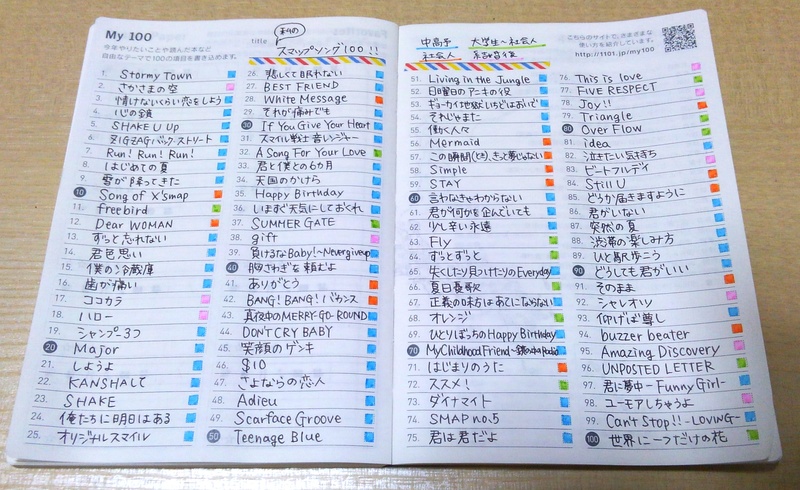 My 100
今年やりたいことや読んだ本など
自由なテーマで100の項目を書き込めます。
title
スマップソング100!!
1. Stormy Town
2. さかさまの空
3. 情けないくらい恋をしよう
4. 心の鏡
5. SHAKE U Up
6. ZIGZAGバックストリート
7. Run! Run! Run!
8. はじめての夏
9. 雪が降ってきた
10 Song of X'smap
11. freebird
12. Dear WOMAN
13. ずっと忘れない
14. 君色思い
15. 僕の冷蔵庫
16. 歯が痛い
17. ココカラ
18. ハロー
19. シャンプー3つ
20 Major
21. しようよ
22. KANSHAして
23. SHAKE
24. 俺たちに明日はある
25. オリジナルスマイル
26. 悲しくて眠れない
27. BEST FRIEND
28. White Message
29. それが痛みでも
30 If You Give Your Heart
31. スマイル戦士音レンジャー
32. A Song For Your Love
33. 君と僕との6ヵ月
34. 天国のかけら
35. Happy Birthday
36. いますぐ天気にしておくれ
37. SUMMER GATE
38. gift
39. 負けるなBaby!~Never give up
40 胸さわぎを頼むよ
41. ありがとう
42. BANG! BANG! バカンス
43. 真夜中のMERRY-GO-ROUND
44. DON'T CRY BABY
45. 笑顔のゲンキ
46. $10
47. さよならの恋人
48. Adieu
49. Scarface Groove
50 Teenage Blue
中高予
大学生~社会人
社会人
こちらのサイトで、さまざまな
使い方を紹介しています。
http://1101.com/my100
51. Living in the Jungle
52. 日曜日のアニキの役
53. ギョーカイ地獄いちどはおいで
54. それじゃまた
55. 働く人々
56. Mermaid
57. この瞬間(とき)、きっと夢じゃない
58. Simple
59. STAY
60 言わなきゃわからない
61. 君が何かを企んでいても
62. 少し辛い永遠
63. Fly
64. ずっとずっと
65. 失くしたり見つけたりのEveryday
66. 夏日憂歌
67. 正義の味方はあてにならない
68. オレンジ
69. ひとりぼっちのHappy Birthday
70 My Childhood Friend
71. はじまりのうた
72. ススメ!
73. ダイナマイト
74. SMAP no.5
75. 君は君だよ
76. This is love
77. FIVE RESPECT
78. Joy!!
79. Triangle
80 Over Flow
81. idea
82. 泣きたい気持ち
83. ビートフルデイ
84. Still U
85. どうか届きますように
86. 君がいない
87. 突然の夏
88. 渋滞の楽しみ方
89. ひと駅歩こう
90 どうしても君がいい
91. そのまま
92. シャレオツ
93. 仰げば尊し
94. buzzer beater
95. Amazing Discovery
96. UNPOSTED LETTER
97. 君に夢中-Funny Girl-
98. ユーモアしちゃうよ
99. Can't Stop!! -LOVING-
100 世界に一つだけの花